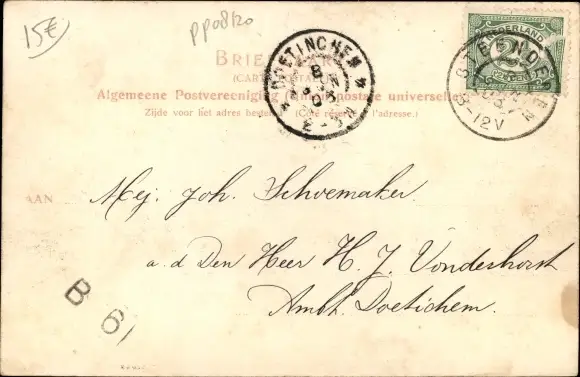 15€
PP08120
NEDERLAND
BRIEFKAART
(CARTE POSTALE)
Algemeene Postvereeniging (Union postale universelle)
Zijde voor het adres bestemd (Côté réservé à l'adresse.)
DOETINCHEM
8
2-3N
STEENDEREN
8-12V
AAN
Mej. Joh. Schoemaker.
a.d Den Heer H. J. Vonderhorst
Ambt. Doetichem.
B 61